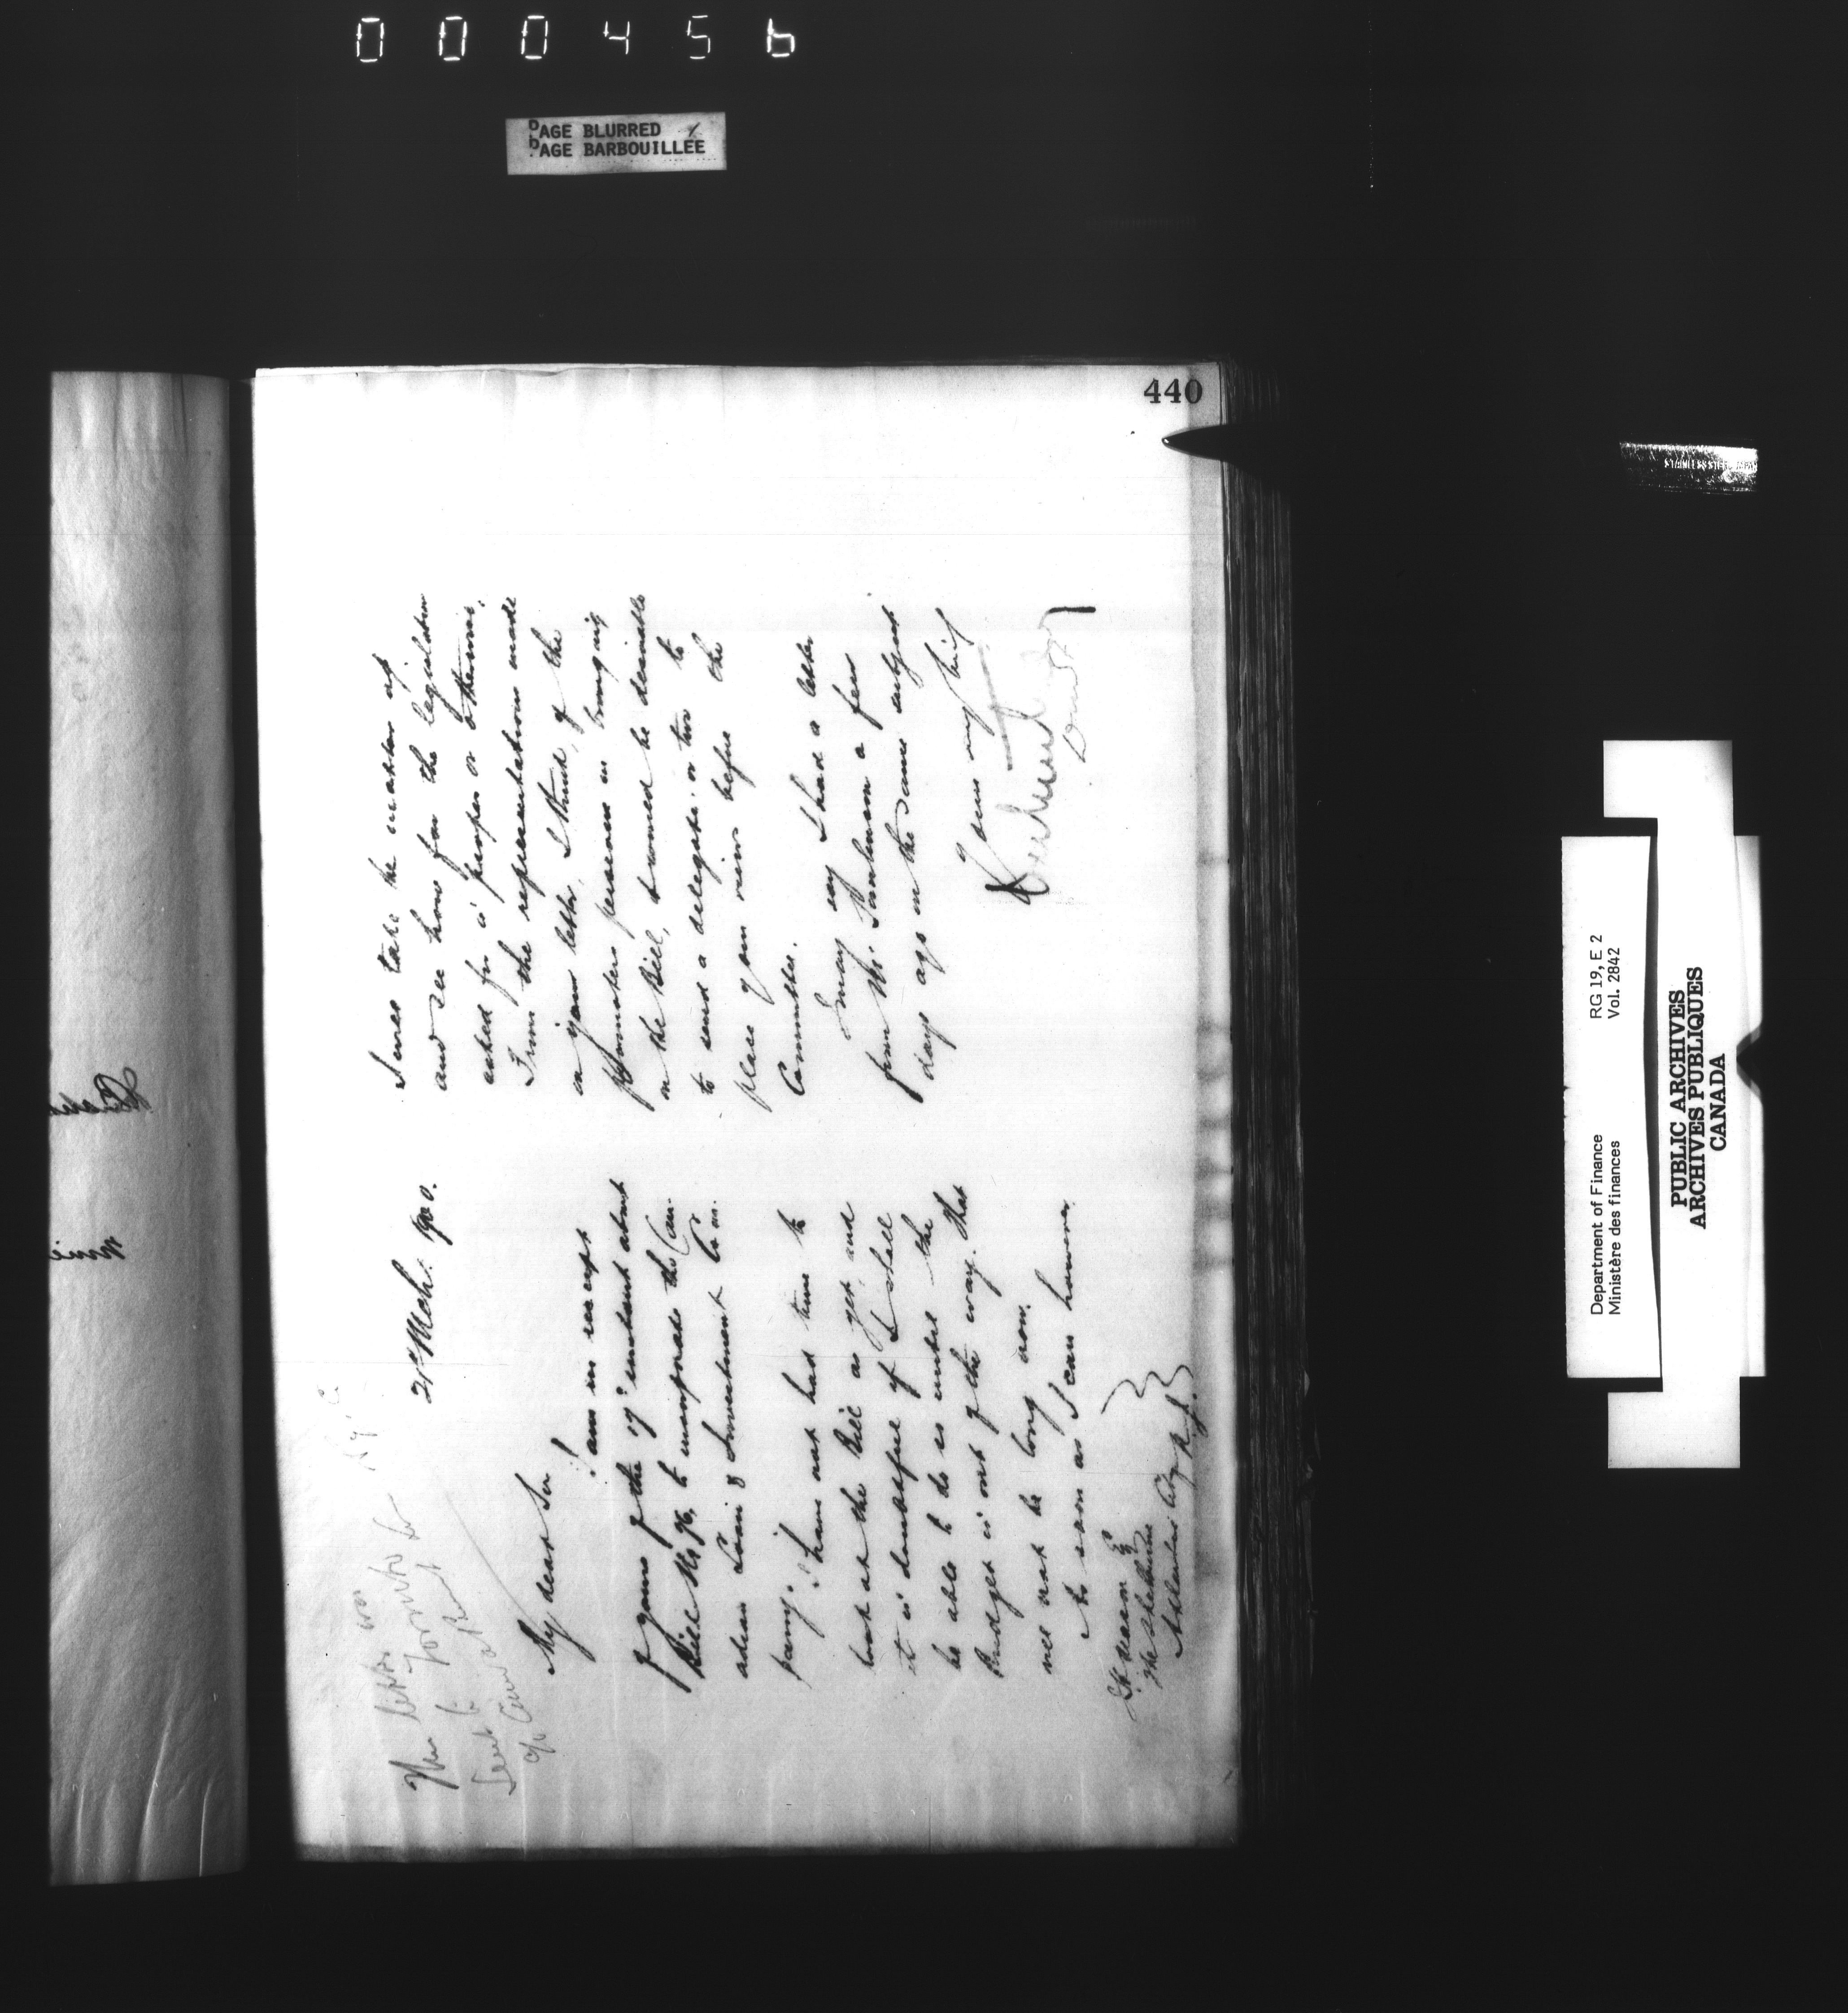 000456
PAGE BLURRED
PAGE BARBOUILLÉE
440
This letter was
sent to
21st Mch. 1900.
My dear Sir
I am in receipt
of yours of the 19th instant about
Bill No 96. to incorporate the Can-
adian Loan & Investment Com-
pany. I have not had time to
look at the Bill as yet, and
it is doubtful if I shall
be able to do so until the
Budget is out of the way. That
will not be long now.
As soon as I can however
The Sheltering
I will take the matter up
and see how far the legislation
asked for is proper or otherwise.
From the representations made
in your letter, I think, if the
promoters persevere in bringing
on the Bill, it would be desirable
to send a delegate or two to
place your views before the
Committee.
I may say I had a letter
from Mr. a few
days ago on the same subject
Yours very truly
Department of Finance RG 19, E 2
Ministère des finances Vol. 2842
PUBLIC ARCHIVES
ARCHIVES PUBLIQUES
CANADA